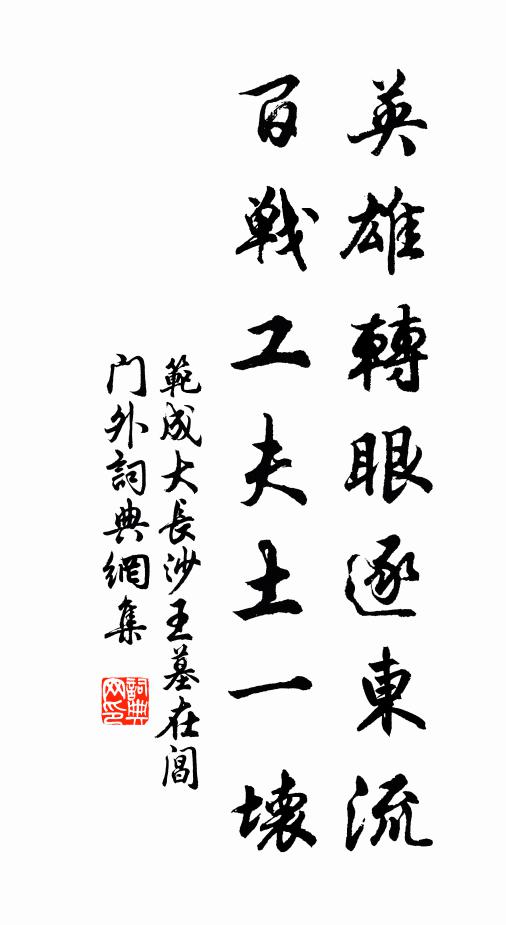 英雄轉眼逐東流
百戰工夫土一壞
範成大長沙王墓在閶
门外詞典網集
詞典
网印